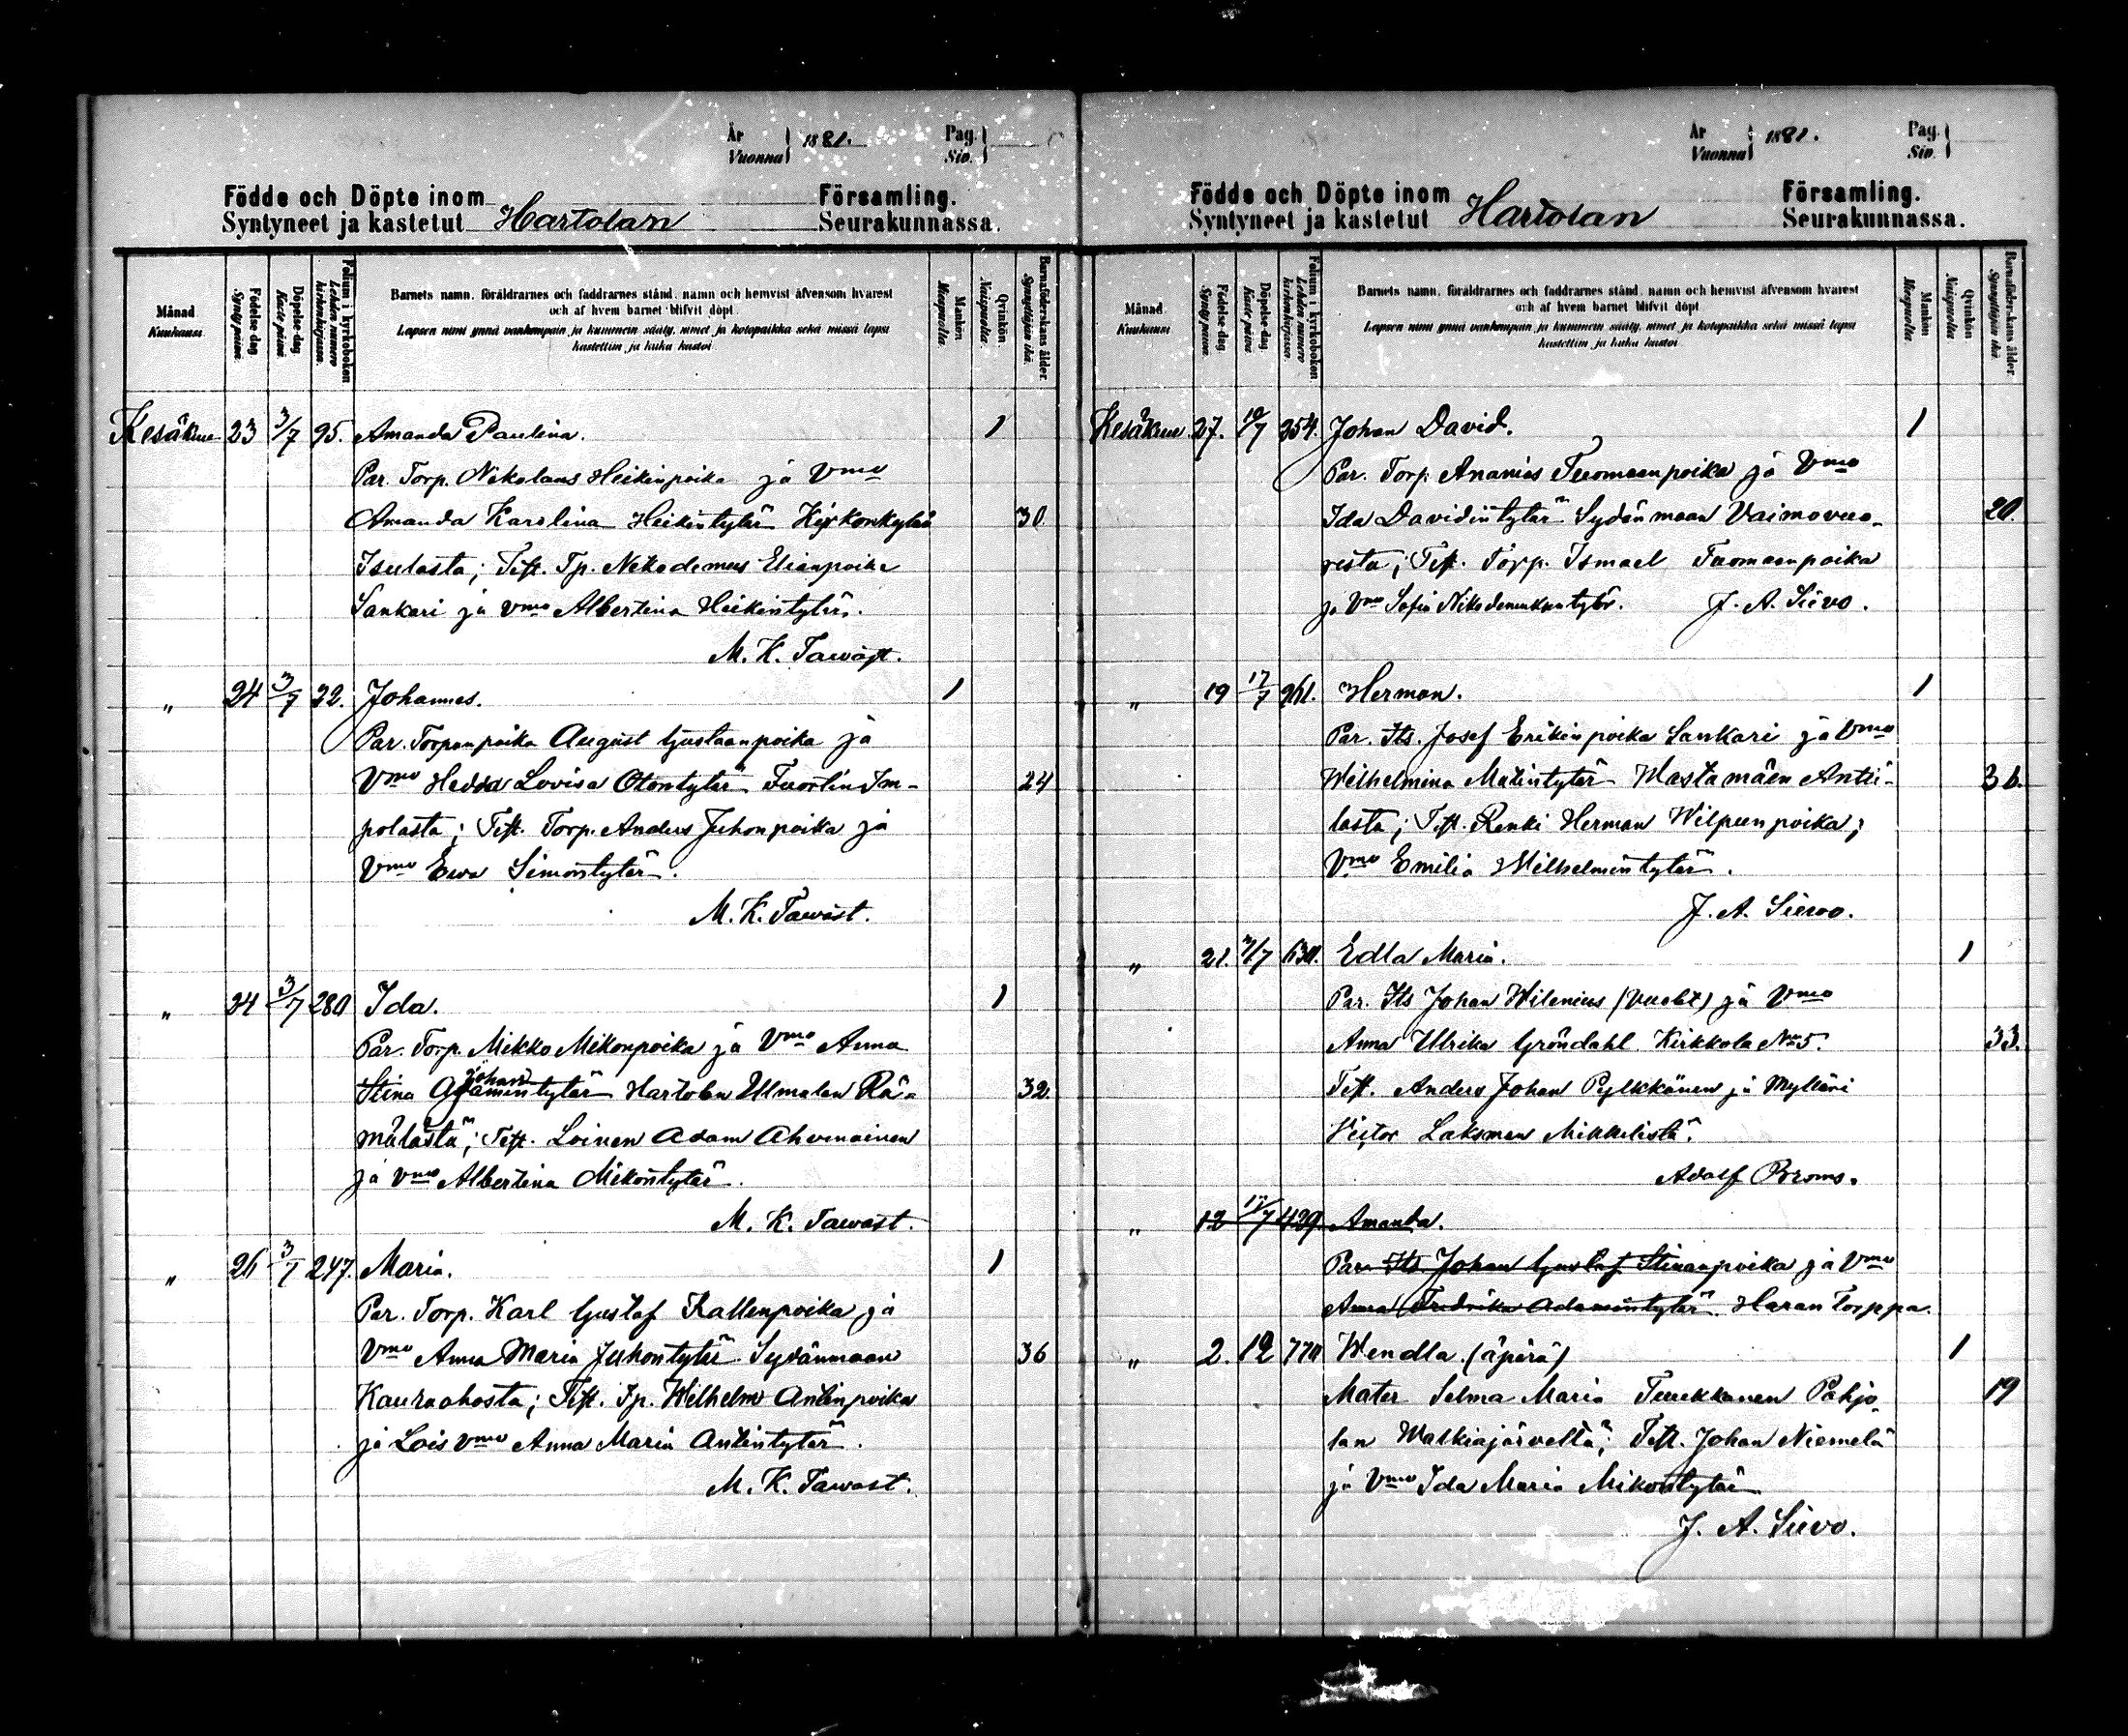 År
Vuonna 1881. Pag.
Siv.
Födde och Döpte inom Församling.
Syntyneet ja kastetut Hartolan Seurakunnassa.
Månad
Kuukausi
Födelse-dag
Syntypäivä.
Döpelse-dag
Kastepäivä
Folium i kyrkoboken
Lehden numero
kirkonkirjassa.
Barnets namn, föräldrarnes och faddrarnes stånd, namn och hemvist äfvensom hvarest
och af hvem barnet blifvit döpt.
Lapsen nimi ynnä vanhempain ja kummein sääty, nimet ja kotopaikka sekä missä lapsi
kastettiin ja kuka kastoi
Mankön
Miespuolia.
Qvinkön
Naispuolia.
Barnaföderskans ålder.
Synnyttäjän ikä.
Kesäkuu 23 3/7 95. Amanda Paulina. 1
Par. Torp. Nikolaus Heikinpoika ja Vmo
Amanda Karolina Heikintytär Kirkonkylän 30
Isulasta; Test. Tp. Nikodemus Elianpoika
Sankari ja Vmo Albertina Heikintytär.
M. K. Tawast.
" 24 3/7 22. Johannes. 1
Par. Torpanpoika August Gustaanpoika ja
Vmo Hedda Lovisa Otontytär Im- 24
polasta; Test. Torp. Anders Juhonpoika ja
Vmo Ewa Simontytär.
M. K. Tawast.
" 24 3/7 280 Ida. 1
Par. Torp. Mikko Mikonpoika ja Vmo Anna
Johan
Stina Adamintytär Hartolan Ulmalan Rä- 32.
mälästä; Test. Loinen Adam Ahvenainen
ja Vmo Albertina Mikontytär.
M. K. Tawast.
" 26 3/7 247. Maria. 1
Par. Torp. Karl Gustaf Kallenpoika ja
Vmo Anna Maria Juhontytär Sydänmaan 36
Kauraahosta; Test. Tp. Wilhelm Antinpoika
ja Lois Vmo Anna Maria Antintytär.
M. K. Tawast.
År
Vuonna 1881. Pag.
Siv.
Födde och Döpte inom Församling.
Syntyneet ja kastetut Hartolan Seurakunnassa.
Månad
Kuukausi
Födelse-dag
Syntypäivä.
Döpelse-dag
Kastepäivä
Folium i kyrkoboken.
Lehden numero
kirkonkirjassa.
Barnets namn, föräldrarnes och faddrarnes stånd, namn och hemvist äfvensom hvarest
och af hvem barnet blifvit döpt
Lapsen nimi ynnä vanhempain ja kummein sääty, nimet ja kotopaikka sekä missä lapsi
kastettiin ja kuka kastoi
Mankön
Miespuolia.
Qvinkön
Naispuolia
Barnaföderskans ålder.
Synnyttäjän ikä.
Kesäkuu 27. 10/7 354. Johan David. 1
Par. Torp. Ananias Tuomaanpoika ja Vmo
Ida Davidintytär Sydänmaan Vaimovuo- 20.
resta; Test. Torp. Ismael Tuomaanpoika
ja Vmo Sofia Nikodemuksentytär. J. A. Siivo.
" 19 17/7 961. Herman. 1
Par. Its. Josef Erikinpoika Sankari ja Vmo
Wilhelmina Matintytär Wastamäen Antti- 36.
lasta; Test. Renki Herman Wilpunpoika;
Vmo Emilia Wilhelmintytär.
J. A. Siivo.
" 21. 3/7 630. Edla Maria. 1
Par. Its Johan Wilenius ja Vmo
Anna Ulrika Gröndahl Kirkkola No 5. 33.
Test. Anders Johan Pylkkänen ja Mylläri
Victor Laksman Mikkelistä.
Adolf Broms.
" 12 17/7 429. Amanda.
Par. Its. Johan Gustaf Stinanpoika ja Vmo
Anna Fredrika Adamintytär. Haran Torppa.
" 2. 12 770 Wendla. (äpärä) 1
Mater Selma Maria Turkkanen Pohjo- 19
lan Walkiajärveltä; Test. Johan Niemelä
ja Vmo Ida Maria Mikontytär
J. A. Siivo.